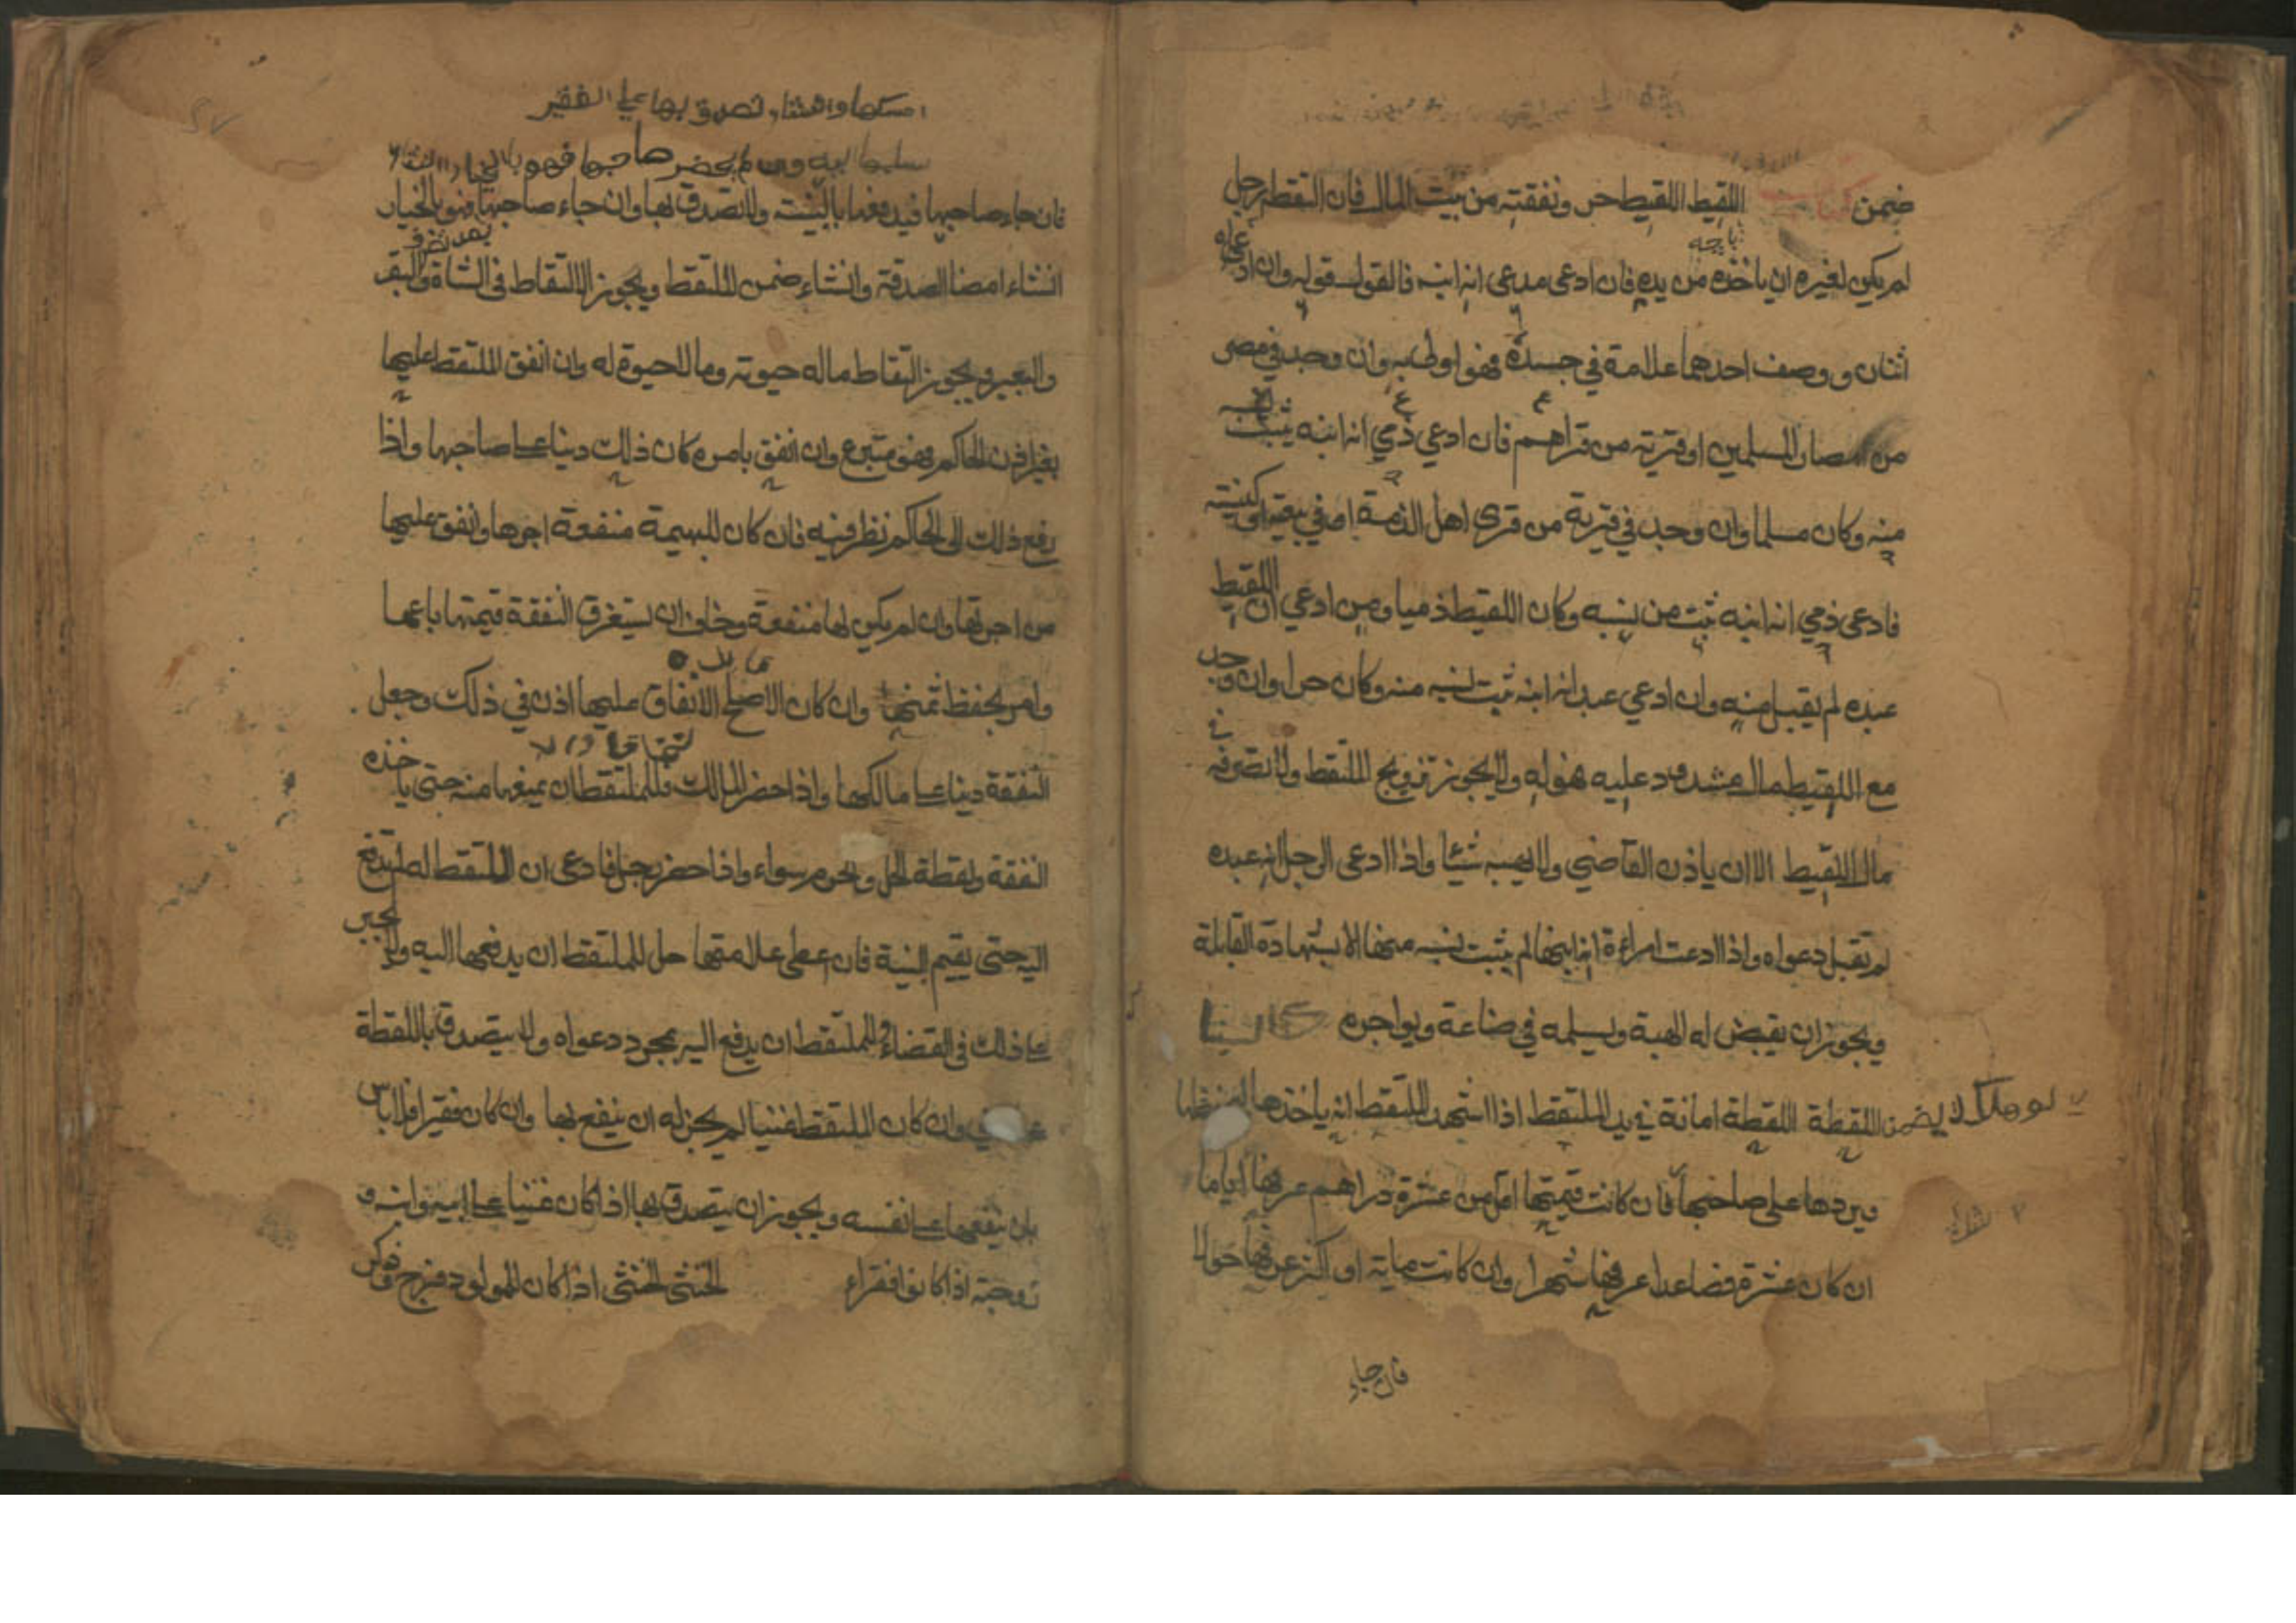 ضمن كتاب اللقيط اللقيط حر ونفقته من بيت المال فان التقطه رجل
لم يكن لغيره ان ياخذه من يده فان ادعى مدعى انه ابنه فالقول قوله وان ادعاه
اثنان ووصف احدهما علامة في جسده فهو اولى به وان وجد في مصر
من امصار المسلمين او قرية من قراهم فان ادعي ذمي انه ابنه يثبت نسبه
منه وكان مسلما وان وجد في قرية من قرى اهل الذمة او في بيعة او كنيسة
فادعى ذمي انه ابنه ثبت من نسبه وكان اللقيط ذميا ومن ادعي ان اللقيط
عبده لم يقبل منه وان ادعي عبد انه ابنه ثبت نسبه منه وكان حرا وان وجد
مع اللقيط مال مشدود عليه فهو له ولا يجوز تزويج الملتقط ولا تصرفه في
مال اللقيط الا ان ياذن القاضي ولا يهبه شئا واذا ادعى الرجل انه عبده
لم تقبل دعواه واذا ادعت امراءة انه ابنها لم يثبت نسبه منها الا بشهادة القابلة
ويجوز ان يقبض له الهبة ويسلمه في صناعة ويواجره
لو هلك لا يضمن
اللقطة اللقطة امانة في يد الملتقط اذا اشهد الملتقط انه ياخذها ليحفظها
ويردها على صاحبها فان كانت قيمتها اقل من عشرة دراهم عرفها اياما
ان كان عشرة فصاعدا عرفها شهرا وان كانت ماية او اكثر عرفها حولا
فان جاء
امسكها وان شاء تصدق بها على الفقير
سلمها اليه وان لم يحضر صاحبها فهو بالخيار ان شاء
فان جاء صاحبها فيدفعها بالبينة والا تصدق بها وان جاء صاحبها فهو بالخيار
بعد تصرف
انشاء امضا الصدقة وانشاء ضمن الملتقط ويجوز الالتقاط في الشاة والبقر
والبعير ويجوز التقاط ماله حيوته وما لا حيوة له وان انفق الملتقط عليها
بغير اذن الحاكم فهو متبرع وان انفق بامره كان ذلك دينا على صاحبها واذا
رفع ذلك الى الحاكم نظر فيه فان كان للبهيمة منفعة اجرها وانفق عليها
من اجرتها وان لم يكن لها منفعة وخاف ان يستغرق النفقة قيمتها باعها
وامر بحفظ ثمنها وان كان الاصلح الانفاق عليها اذن في ذلك وجعل
النفقة دينا على مالكها واذا حضر المالك فللملتقط ان يمنعها منه حتى ياخذه
النفقة ولقطة الحل والحرم سواء واذا حضر رجل فادعى ان الملتقط له لم يدفع
اليه حتى يقيم البينة فان اعطى علامتها حل للملتقط ان يدفعها اليه ولا يجبر
على ذلك في القضاء وللملتقط ان يدفع اليه بمجرد دعواه ولا يتصدق باللقطة
على غني وان كان الملتقط غنيا لم يجز له ان ينفع بها وان كان فقيرا فلا باس
بان ينفعها على نفسه ويجوز ان يتصدق بها اذا كان غنيا على ابيه وابنه و
زوجته اذا كانوا فقراء الخنثى الخنثى اذا كان للمولود فرج وذكر